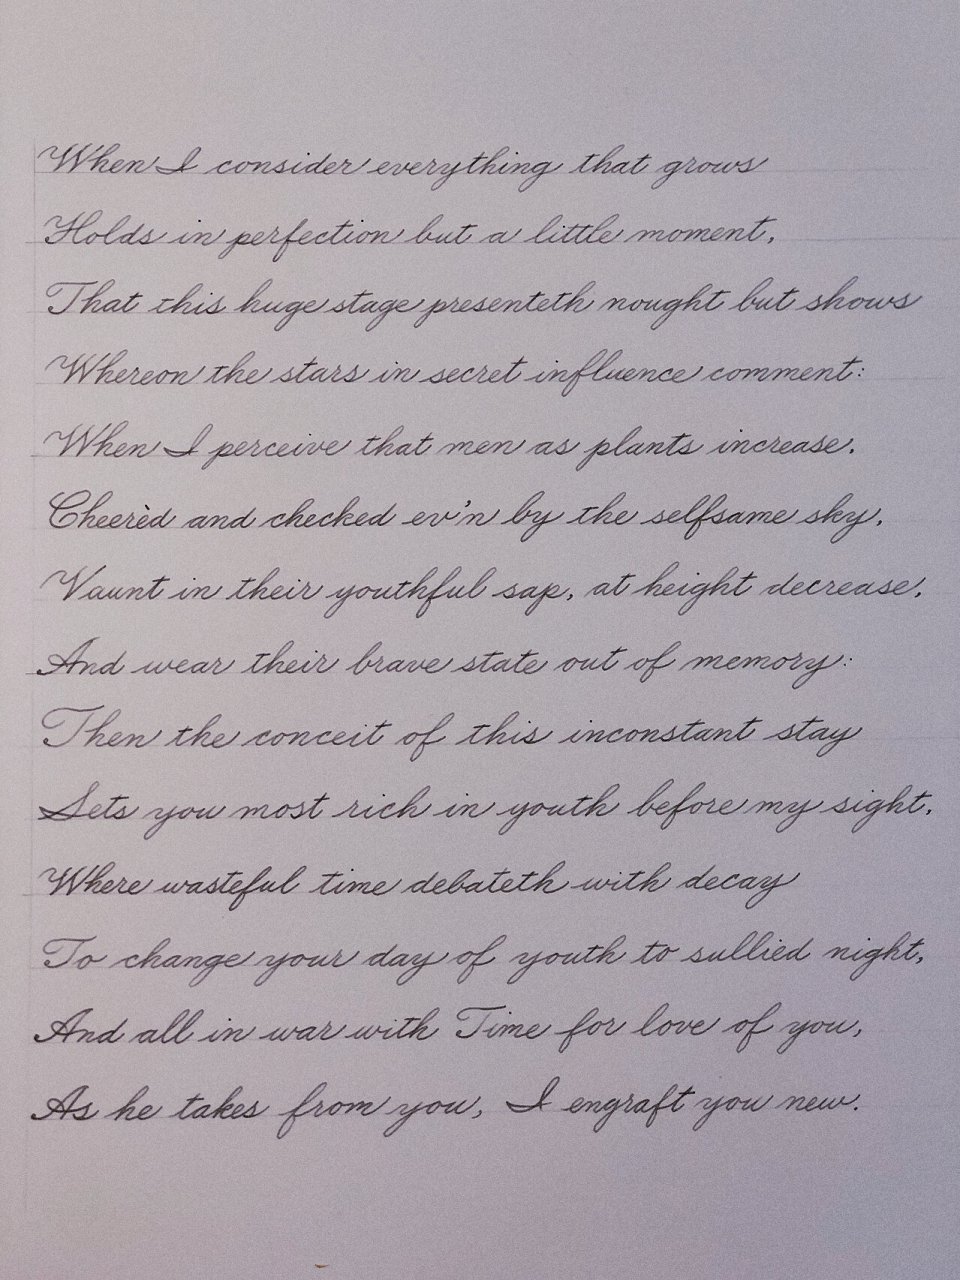 When I consider everything that grows
Holds in perfection but a little moment,
That this huge stage presenteth nought but shows
Whereon the stars in secret influence comment:
When I perceive that men as plants increase.
Cheerèd and checked ev'n by the selfsame sky,
Vaunt in their youthful sap, at height decrease,
And wear their brave state out of memory:
Then the conceit of this inconstant stay
Sets you most rich in youth before my sight,
Where wasteful time debateth with decay
To change your day of youth to sullied night,
And all in war with Time for love of you,
As he takes from you, I engraft you new.